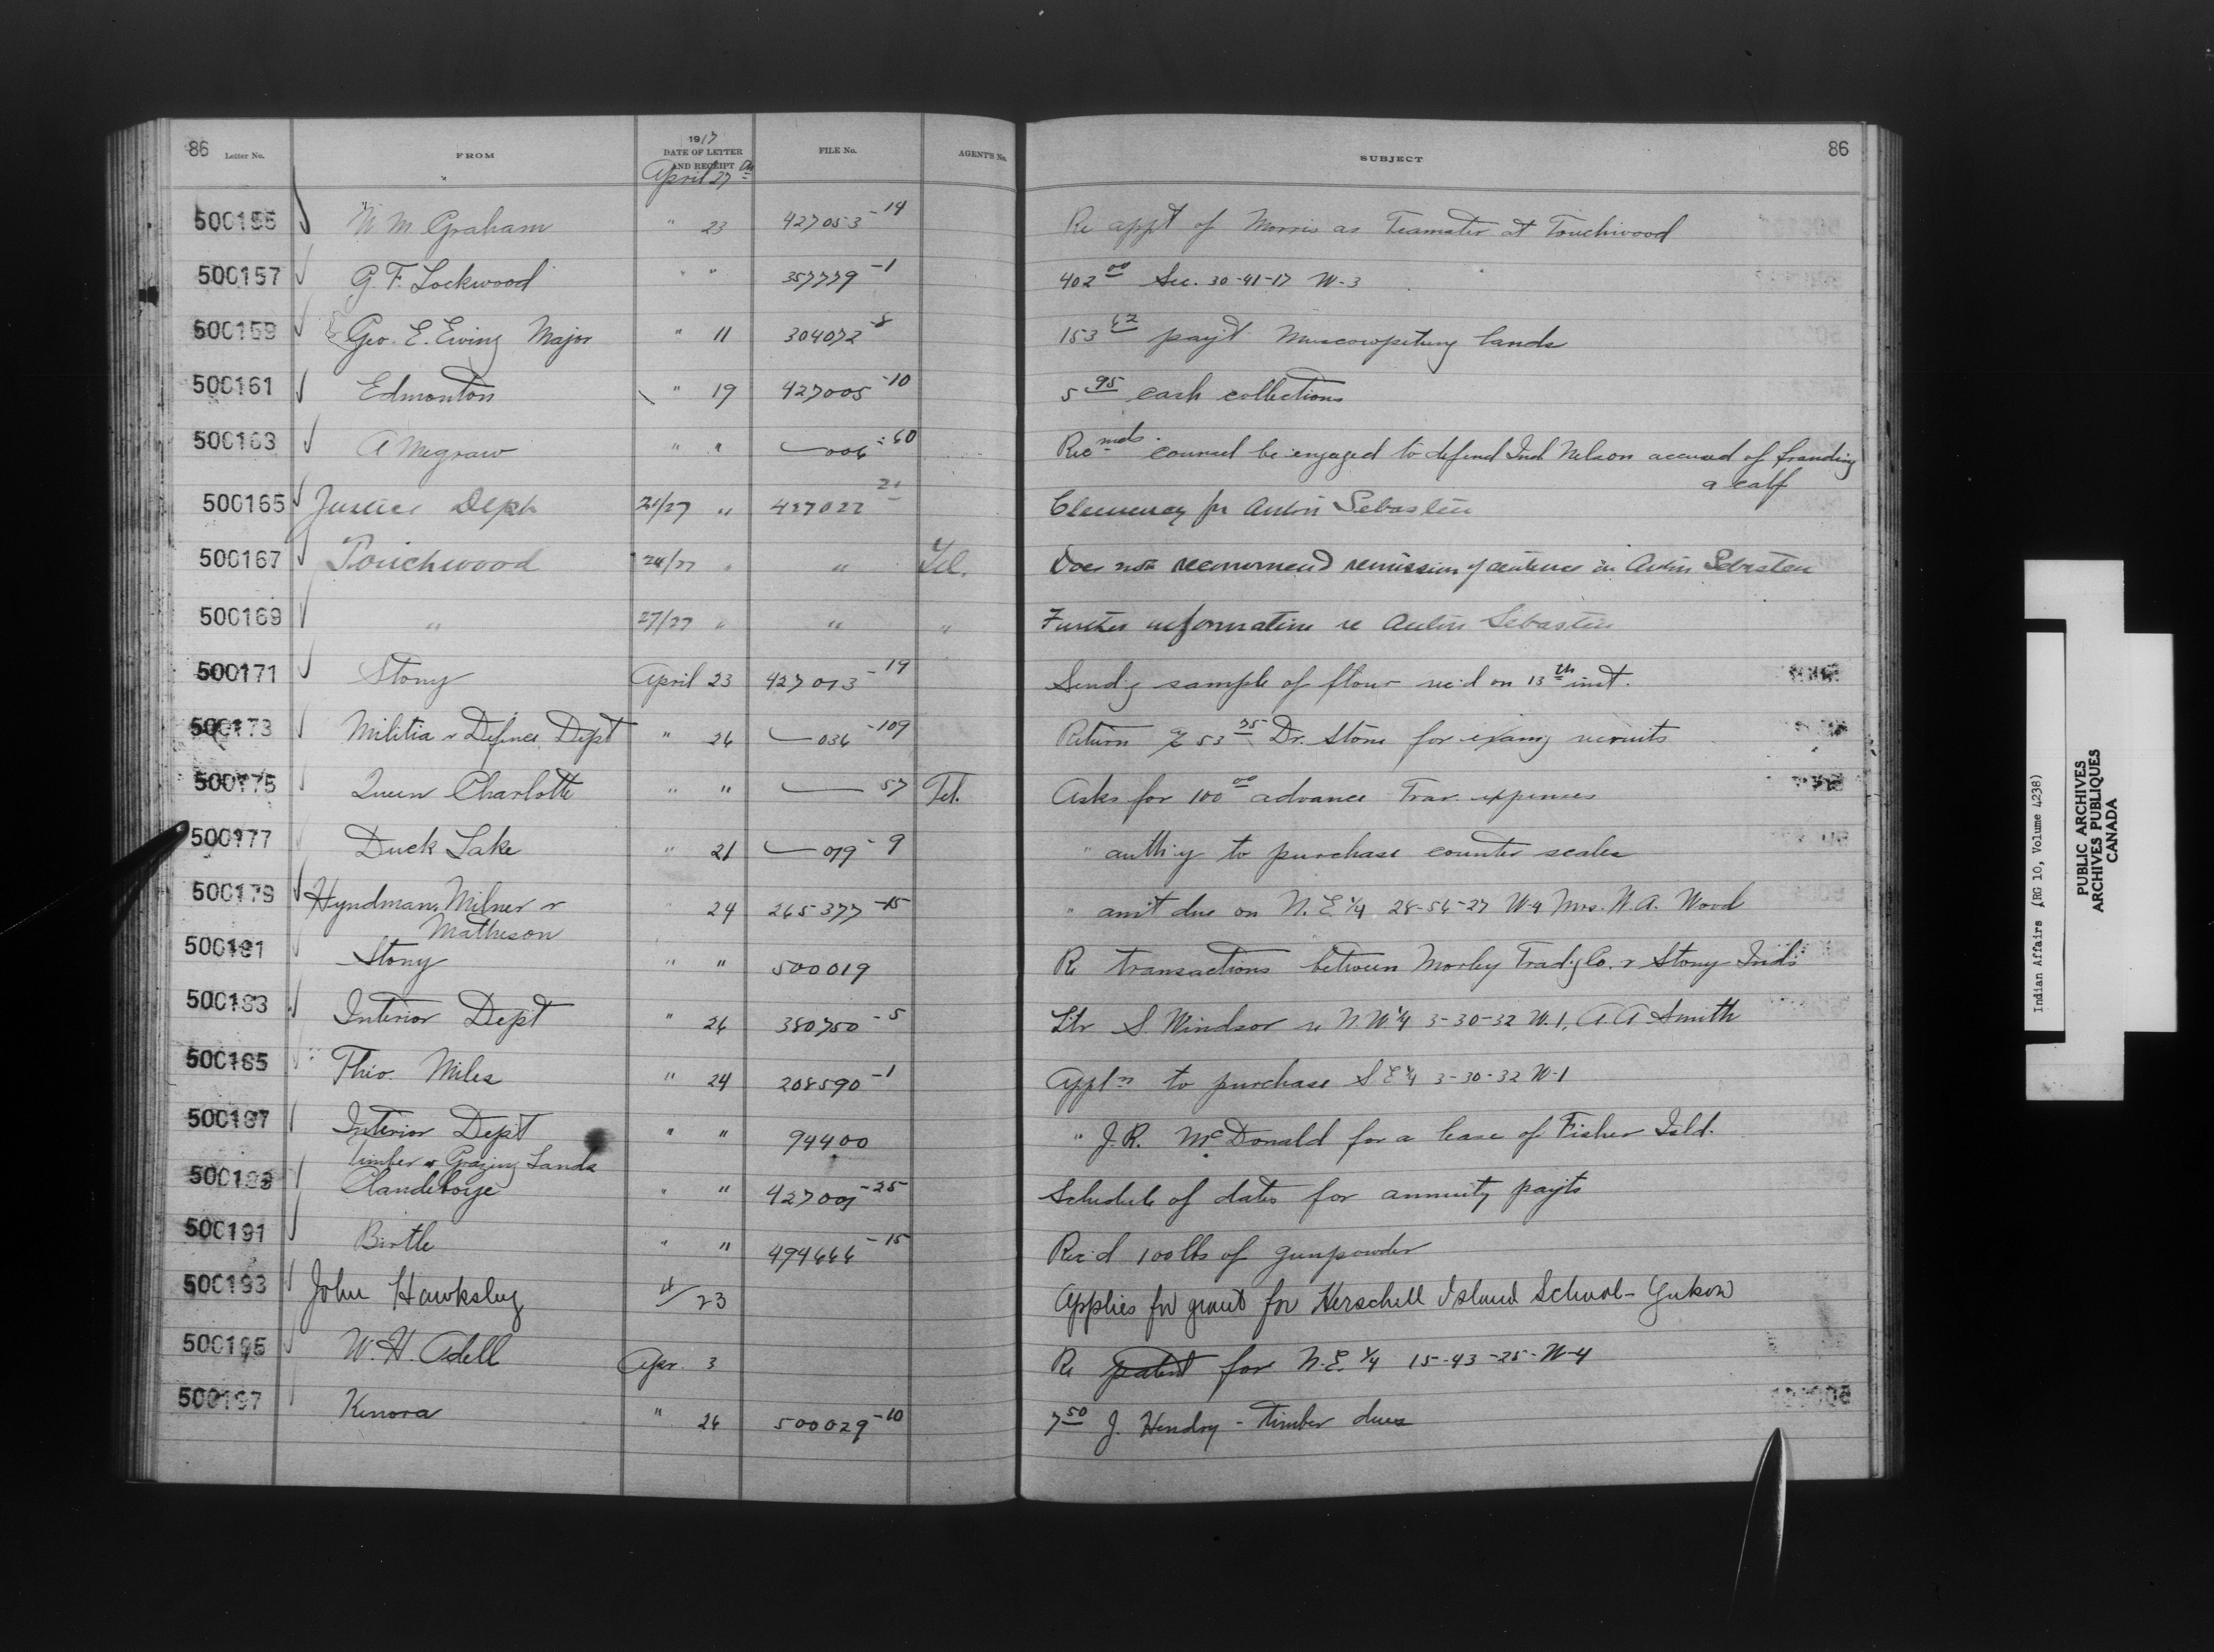 86 Letter No. FROM 1917 DATE OF LETTER AND RECEIPT FILE No. AGENT'S No. SUBJECT 86
April 27th
500155 W. M. Graham " 23 427053-14 Re appt of Morris as Teamster at Touchwood
500157 G. F. Lockwood " " 357779-1 402 00 Sec. 30-41-17 W-3
500159 Geo. E. Ewing Major " 11 304072-8 153 62 pay't Muscowpetung lands
500161 Edmonton " 19 427005-10 5 95 cash collections
500163 A Megraw " " 006-60 Recmds. counsel be engaged to defend Ind Nelson accused of branding
a calf
500165 Justice Dept 21/27 " 427022 21 Clemency for Antoin Sebastien
500167 Touchwood 24/27 " " Tel. Does not recommend remission of sentence in Antoin Sebastien
500169 " 27/27 " " " Further information re Antoin Sebastien
500171 Stony April 23 427013-19 Send'g sample of flour rec'd on 13th inst.
500173 Militia & Defence Dept " 26 036-109 Return % 53 75 Dr. Stone for exam'g recruits
500175 Queen Charlotte " " 57 Tel. Asks for 100 00 advance Trav. expenses
500177 Duck Lake " 21 079-9 " auth'y to purchase counter scales
500179 Hyndman, Milner & " 24 265377-15 " am't due on N.E.¼ 28-56-27 W-4 Mrs. W. A. Wood
Matheson
500181 Stony " " 500019 Re transactions between Morley Trad'g Co. & Stony Inds
500183 Interior Dept " 26 380750-5 Ltr S. Windsor re N.W.¼ 3-30-32 W.1, A. A. Smith
500185 Theo. Miles " 24 208590-1 Appln to purchase S E ¼ 3-30-32 W-1
500187 Interior Dept " " 94400 " J. R. McDonald for a lease of Fisher Isld.
Timber & Grazing Lands
500189 Clandeboye " " 427001-25 Schedule of dates for annuity pay'ts
500191 Birtle " " 494666-15 Rec'd 100 lbs of gunpowder
500193 John Hawksley 4/23 Applies for grant for Herschell Island School - Yukon
500195 W. H. Odell Apr. 3 Re patent for N.E. ¼ 15-43-25-W-4
500197 Kenora " 26 500029-10 7 50 J. Hendry - timber dues
Indian Affairs (RG 10, Volume 4238)
PUBLIC ARCHIVES
ARCHIVES PUBLIQUES
CANADA